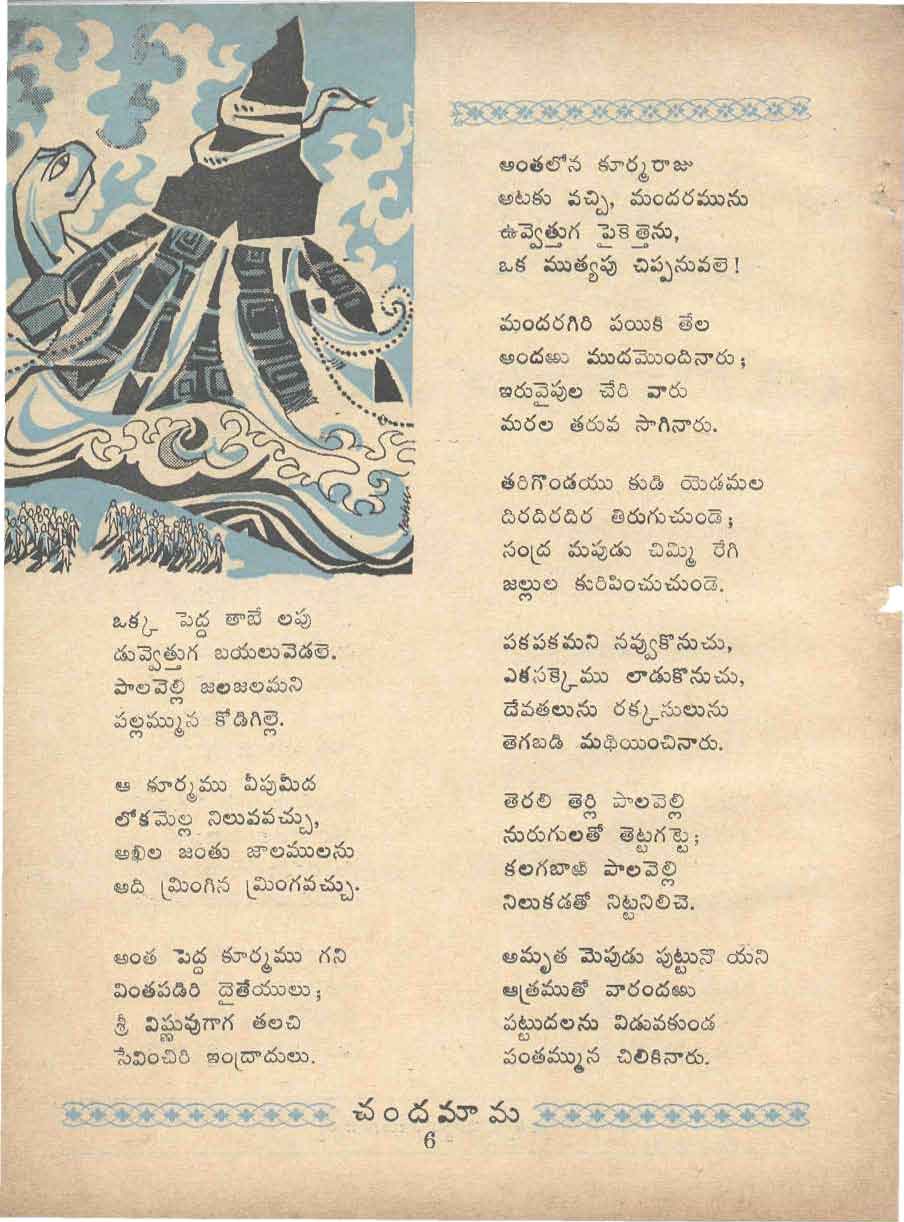 ఒక్క పెద్ద తాబే లపు
డువ్వెత్తుగ బయలువెడలె.
పాలవెల్లి జలజలమని
పల్లమ్మున కోడిగిల్లె.
ఆ కూర్మము వీపుమీద
లోకమెల్ల నిలువవచ్చు,
అఖిల జంతు జాలములను
అది మ్రింగిన మ్రింగవచ్చు.
అంత పెద్ద కూర్మము గని
వింతపడిరి దైతేయులు;
శ్రీ విష్ణువుగాగ తలచి
సేవించిరి ఇంద్రాదులు.
అంతలోన కూర్మరాజు
అటకు వచ్చి, మందరమును
ఉవ్వెత్తుగ పైకెత్తెను,
ఒక ముత్యపు చిప్పనువలె!
మందరగిరి పయికి తేల
అందఱు ముదమొందినారు;
ఇరువైపుల చేరి వారు
మరల తరువ సాగినారు.
తరిగొండయు కుడి యెడమల
దిరదిరదిర తిరుగుచుండె;
సంద్ర మపుడు చిమ్మి రేగి
జల్లుల కురిపించుచుండె.
పకపకమని నవ్వుకొనుచు,
ఎకసక్కెము లాడుకొనుచు,
దేవతలును రక్కసులును
తెగబడి మథియించినారు.
తెరలి తెర్లి పాలవెల్లి
నురుగులతో తెట్టగట్టె;
కలగబాఱి పాలవెల్లి
నిలుకడతో నిట్టనిలిచె.
అమృత మెపుడు పుట్టునొ యని
ఆత్రముతో వారందఱు
పట్టుదలను విడువకుండ
పంతమ్మున చిలికినారు.
చందమామ
6